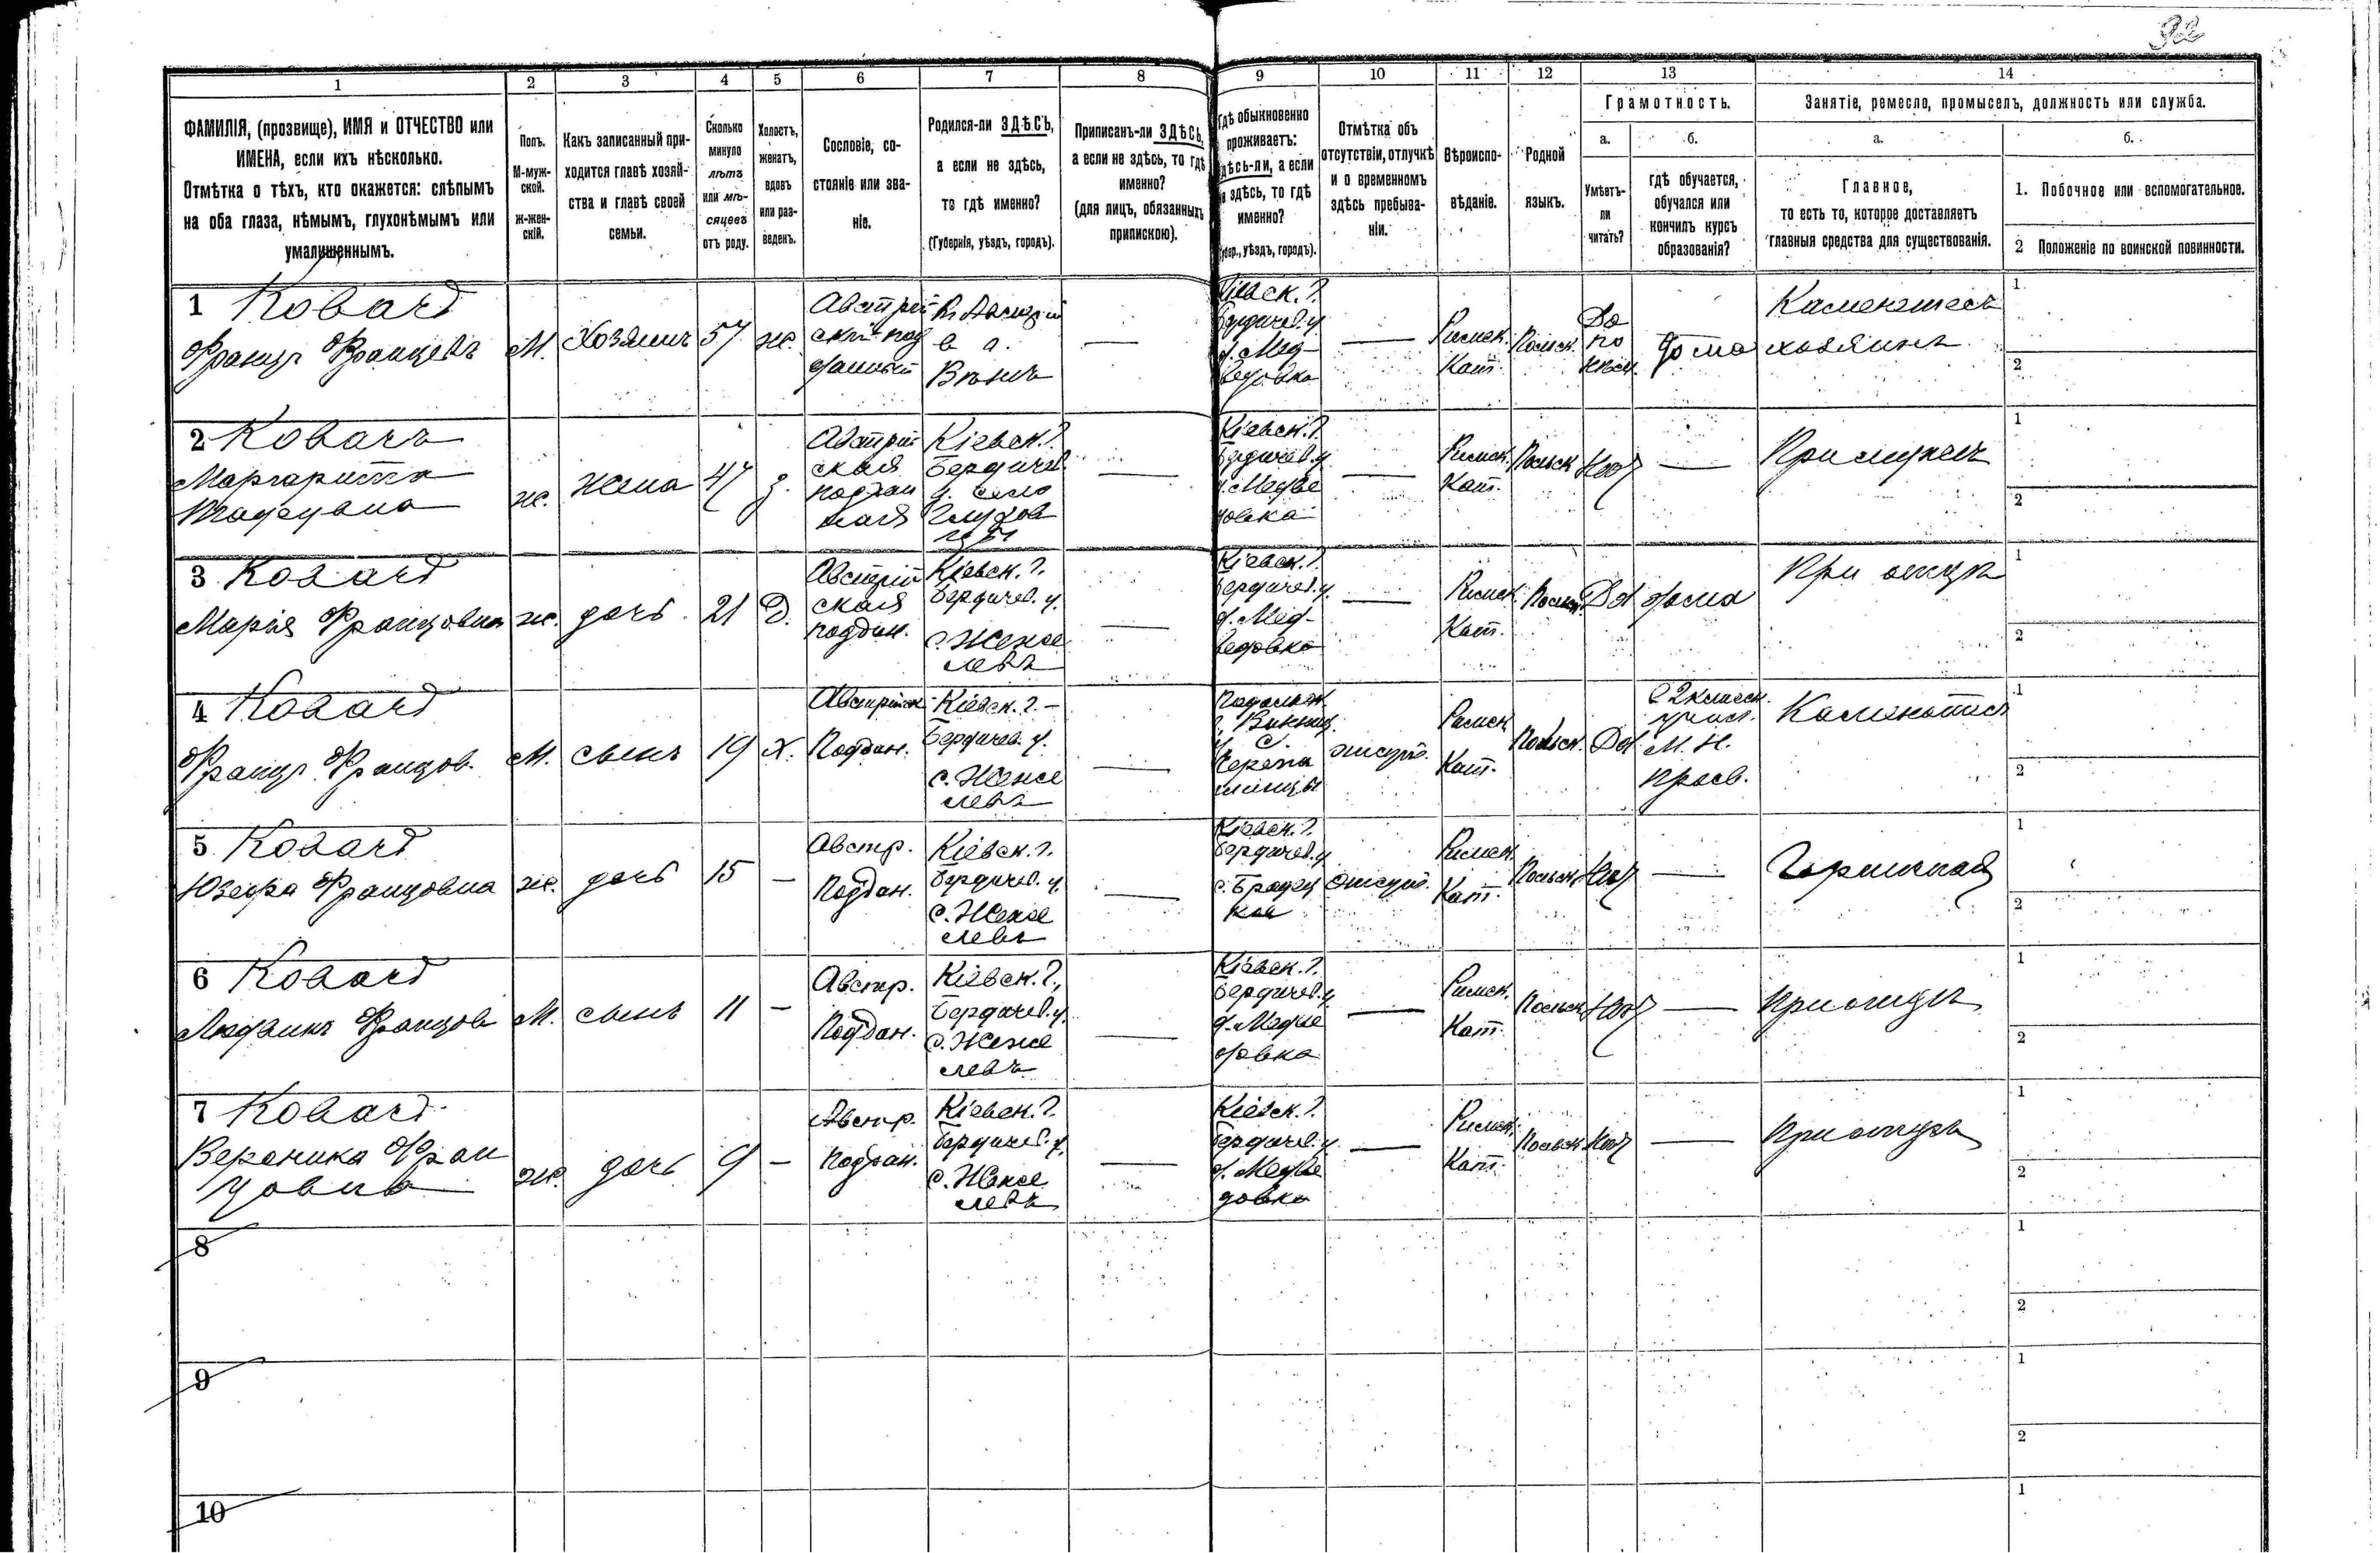 32
1 2 3 4 5 6 7 8 9 10 11 12 13 14
ФАМИЛІЯ, (прозвище), ИМЯ и ОТЧЕСТВО или
ИМЕНА, если ихъ нѣсколько.
Отмѣтка о тѣхъ, кто окажется: слѣпымъ
на оба глаза, нѣмымъ, глухонѣмымъ или
умалишеннымъ.
Полъ.
М-муж-
ской.
ж-жен-
скій.
Какъ записанный при-
ходится главѣ хозяй-
ства и главѣ своей
семьи.
Сколько
минуло
лѣтъ
или мѣ-
сяцевъ
отъ роду.
Холостъ,
женатъ,
вдовъ
или раз-
веденъ.
Сословіе, со-
стояніе или зва-
ніе.
Родился-ли ЗДѢСЬ,
а если не здѣсь,
то гдѣ именно?
(Губернія, уѣздъ, городъ).
Приписанъ-ли ЗДѢСЬ,
а если не здѣсь, то гдѣ
именно?
(для лицъ, обязанныхъ
припискою).
гдѣ обыкновенно
проживаетъ:
здѣсь-ли, а если
не здѣсь, то гдѣ
именно?
(Губер., уѣздъ, городъ).
Отмѣтка объ
отсутствіи, отлучкѣ
и о временномъ
здѣсь пребыва-
ніи.
Вѣроиспо-
вѣданіе.
Родной
языкъ.
Грамотность.
а.
Умѣетъ-
ли
читать?
б.
гдѣ обучается,
обучался или
кончилъ курсъ
образованія?
Занятіе, ремесло, промыселъ, должность или служба.
а.
Главное,
то есть то, которое доставляетъ
главныя средства для существованія.
б.
1. Побочное или вспомогательное.
2 Положеніе по воинской повинности.
1 Ковачъ
Францъ Францевъ
М.
Хозяинъ
57
ж.
Австрій
скій под
данный
Вѣнъ
Кіевск. г.
Бердичев. у.
д. Мед-
ведовка
Римск.
Кат.
Польск.
До
по
дома
хозяинъ
1
2
2 Ковачъ
Маргарита
ж.
жена
47
з.
Австрій
ская
поддан
ная
Кіевск. г.
Бердичев.
у. село
Кіевск. г.
Бердичев. у.
д. Медве
довка
Римск.
Кат.
Польск.
Нѣт
При мужѣ
1
2
3 Ковачъ
Марія Францовна
ж.
дочь
21
Д.
Австрій
ская
поддан.
Кіевск. г.
Бердичев. у.
с. Женже
левъ
Кіевск. г.
Бердичев. у.
д. Мед-
ведовка
Римск.
Кат.
Польск.
Да
дома
При отцѣ
1
2
4 Ковачъ
Францъ Францов.
М.
сынъ
19
Х.
Австрійск.
Поддан.
Кіевск. г.
Бердичев. у.
с. Женже
левъ
Подольск.
г. Винниц.
у. с.
Черепа
шинцы
отсутс.
Римск.
Кат.
Польск.
Да
в 2 классн.
учил.
М. Н.
Просв.
1
2
5 Ковачъ
Юзефа Францовна
ж.
дочь
15
Австр.
Поддан.
Кіевск. г.
Бердичев. у.
с. Женже
левъ
Кіевск. г.
Бердичев. у.
с. Бродец
кое
Отсутс.
Римск.
Кат.
Польск.
Нѣт
Горничная
1
2
6 Ковачъ
Людвикъ Францов
М.
сынъ
11
Австр.
Поддан.
Кіевск. г.
Бердичев. у.
с. Женже
левъ
Кіевск. г.
Бердичев. у.
д. Медве
довка
Римск.
Кат.
Польск.
Нѣт
При отцѣ
1
2
7 Ковачъ
Вероника Фран
цовна
ж.
дочь
9
Австр.
Поддан.
Кіевск. г.
Бердичев. у.
с. Женже
левъ
Кіевск. г.
Бердичев. у.
д. Медве
довка
Римск.
Кат.
Польск.
Нѣт
При отцѣ
1
2
8
1
2
9
1
2
10
1